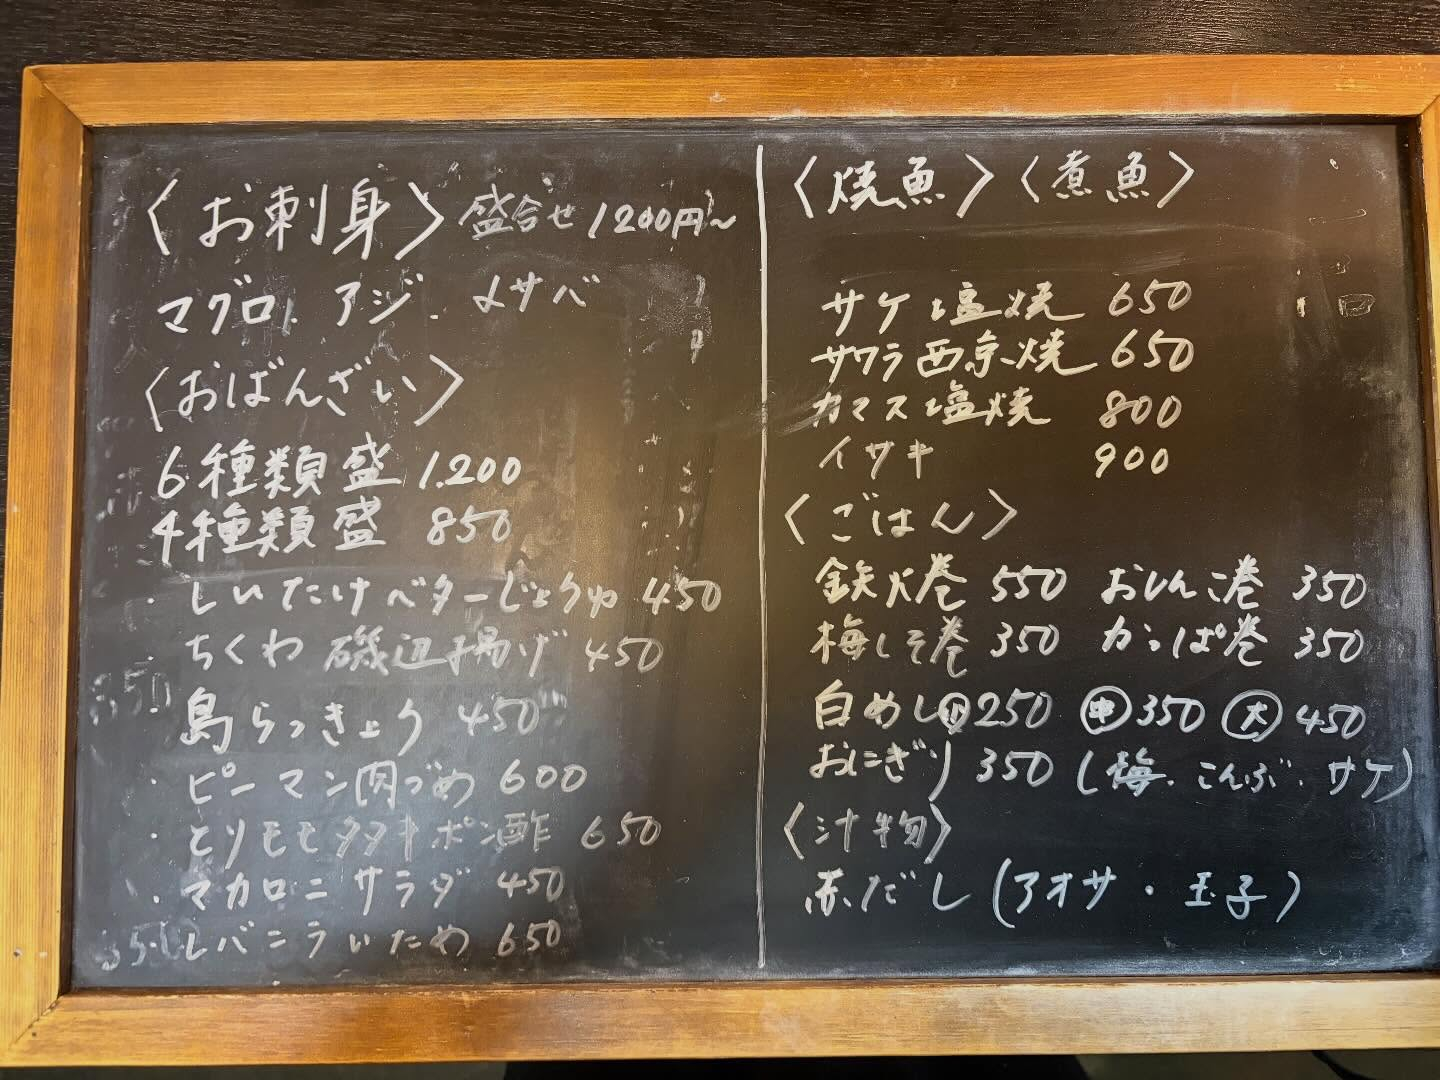 〈お刺身〉盛合せ 1200円〜
マグロ. アジ. 〆サバ
〈おばんざい〉
6種類盛 1.200
4種類盛 850
・しいたけバターじょうゆ 450
・ちくわ磯辺揚げ 450
・島らっきょう 450
・ピーマン肉づめ 600
・とりモモタタキポン酢 650
・マカロニサラダ 450
レバニラいため 650
〈焼魚〉〈煮魚〉
サケ塩焼 650
サワラ西京焼 650
カマス塩焼 800
イサキ 900
〈ごはん〉
鉄火巻 550 おしんこ巻 350
梅しそ巻 350 かっぱ巻 350
白めし㊤250 ㊥350 大 450
おにぎり 350 (梅. こんぶ. サケ)
〈汁物〉
赤だし (アオサ・玉子)